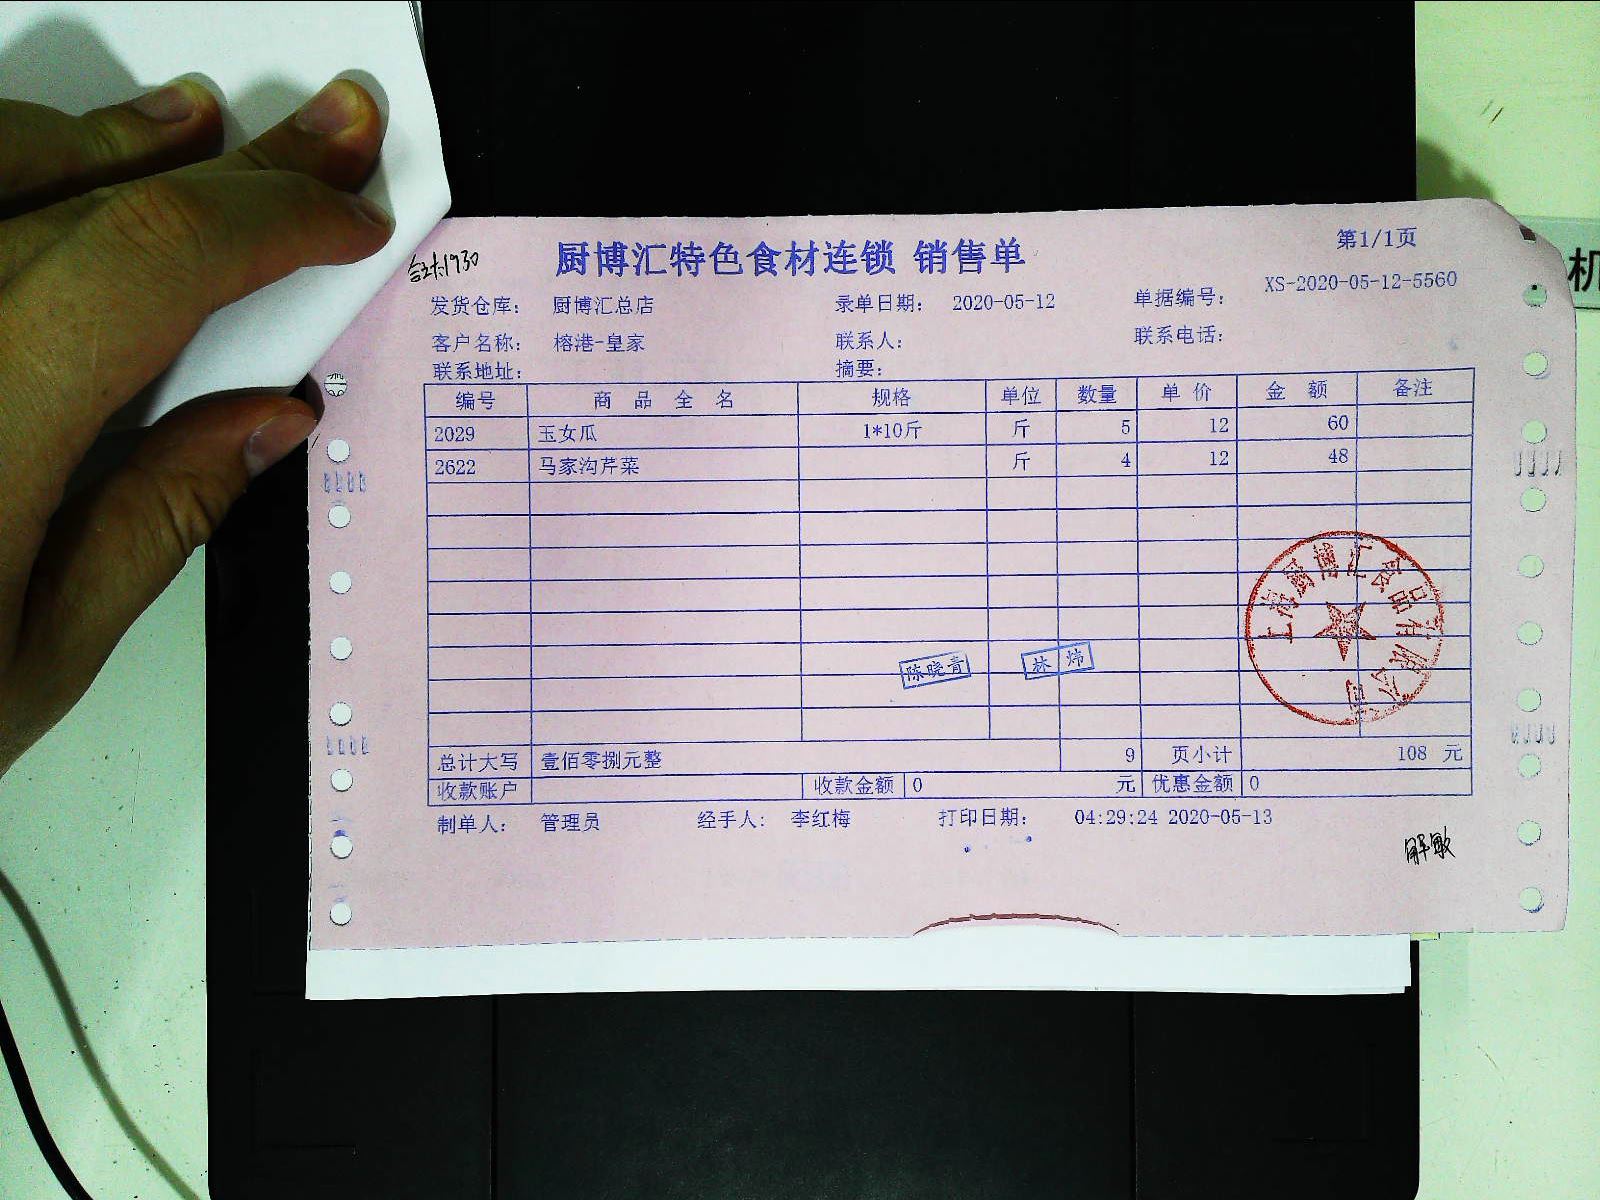 厨博汇特色食材连锁 销售单
第1/1页
XS-2020-05-12-5560
发货仓库： 厨博汇总店 录单日期： 2020-05-12 单据编号：
客户名称： 榕港-皇家 联系人： 联系电话：
联系地址： 摘要：
编号 商品全名 规格 单位 数量 单价 金额 备注
2029 玉女瓜 1*10斤 斤 5 12 60
2622 马家沟芹菜 斤 4 12 48
上海厨博汇食品有限公司
陈晓青 林炜
总计大写 壹佰零捌元整 9 页小计 108 元
收款账户 收款金额 0 元 优惠金额 0
制单人： 管理员 经手人： 李红梅 打印日期： 04:29:24 2020-05-13
解敏
机